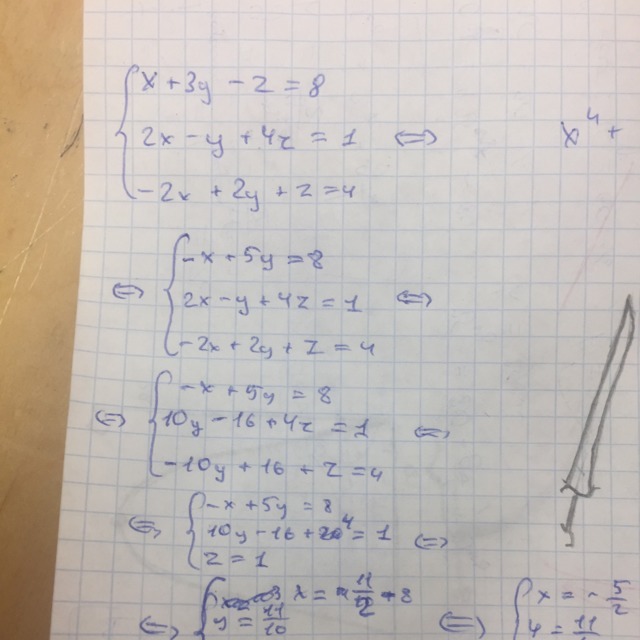 x + 3y - z = 8
2x - y + 4z = 1 ⇔
x⁴ +
-2x + 2y + z = 4
-x + 5y = 8
⇔ 2x - y + 4z = 1 ⇔
-2x + 2y + z = 4
-x + 5y = 8
⇔ 10y - 16 + 4z = 1 ⇔
-10y + 16 + z = 4
-x + 5y = 8
⇔ 10y - 16 + 4 = 1 ⇔
z = 1
x = 11/2 - 8
⇔ y = 11/10 ⇔
x = - 5/2